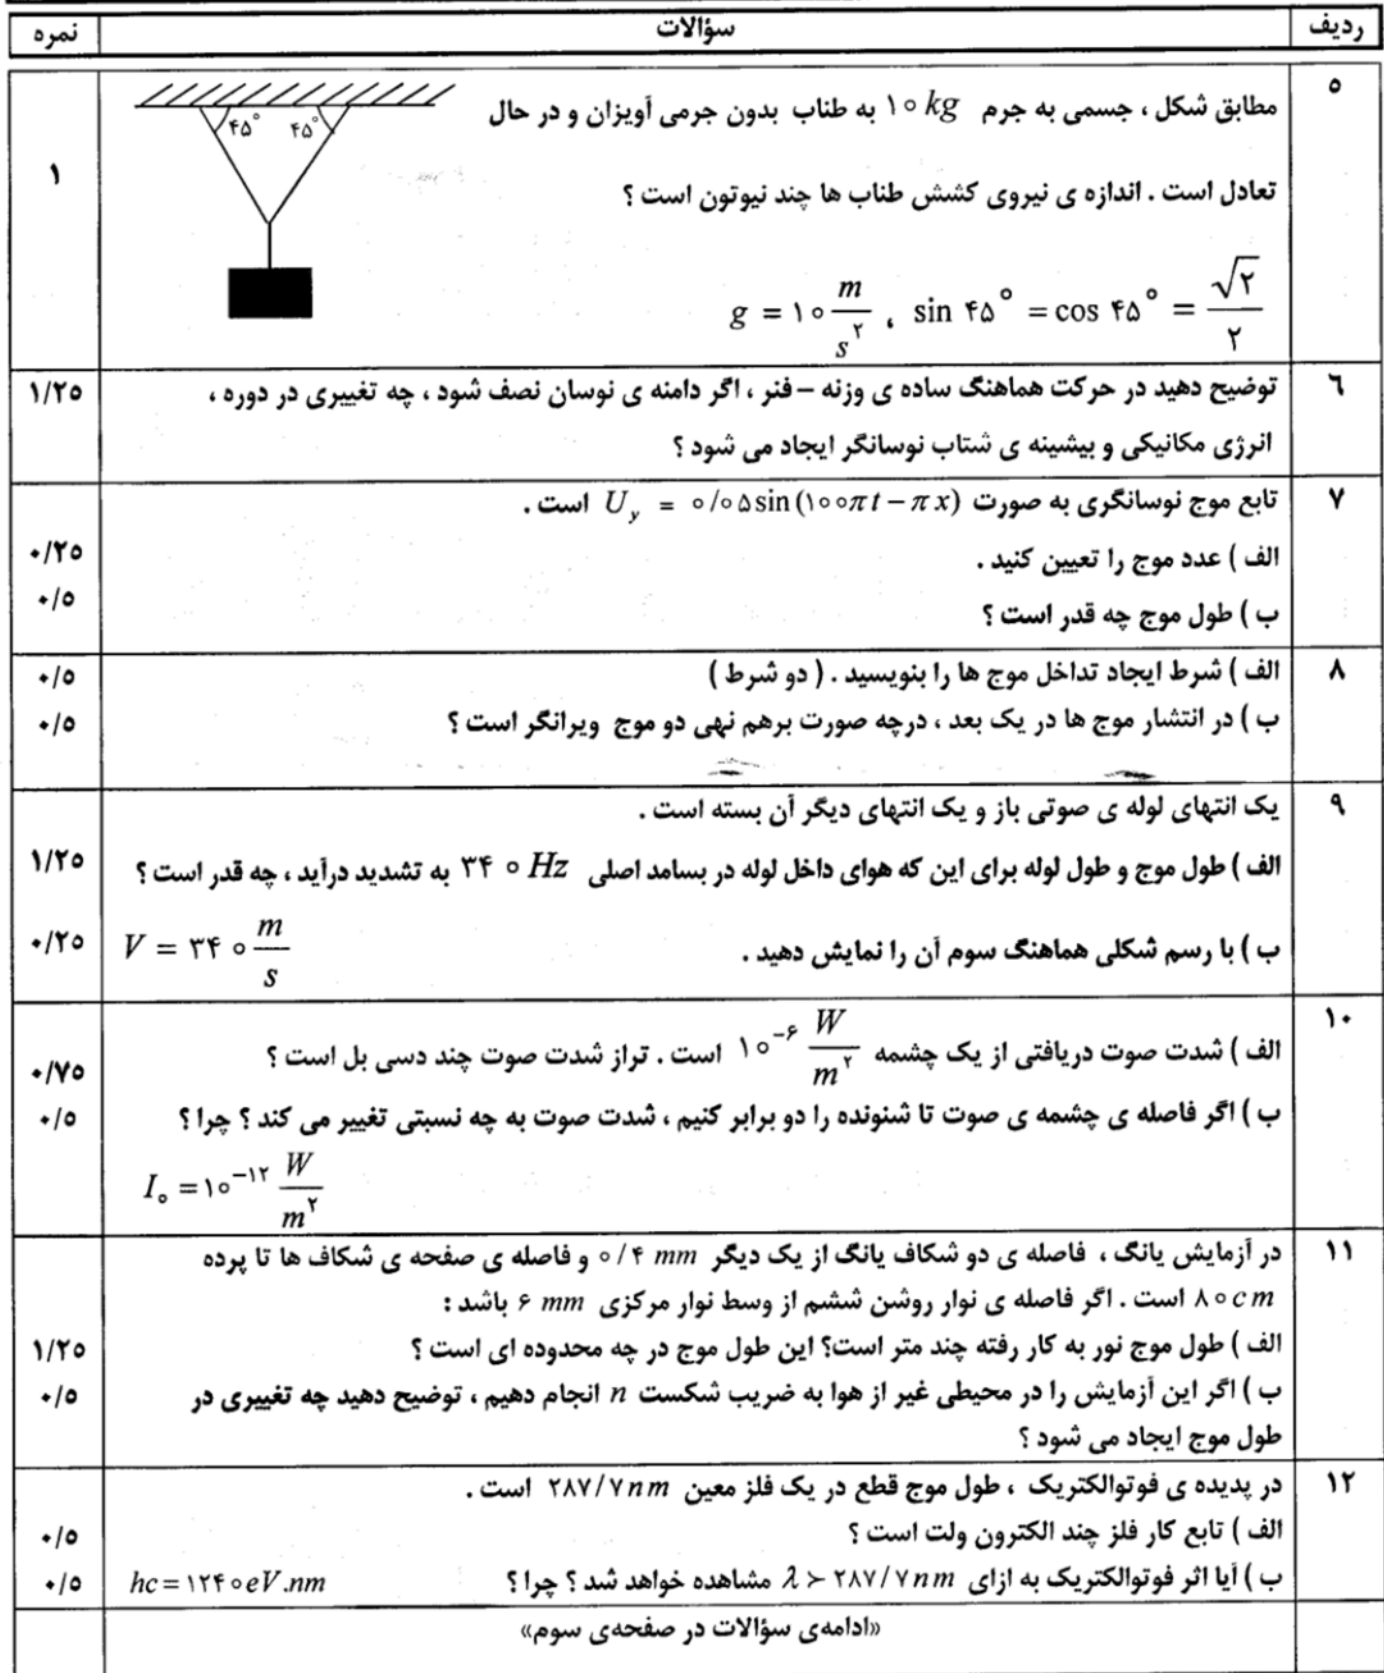 ردیف سؤالات نمره
۵ مطابق شکل ، جسمی به جرم ۱۰ kg به طناب بدون جرمی آویزان و در حال
۴۵° ۴۵°
تعادل است . اندازه ی نیروی کشش طناب ها چند نیوتون است ؟ ۱
g = ۱۰ m/s^۲ ، sin ۴۵° = cos ۴۵° = √۲/۲
۶ توضیح دهید در حرکت هماهنگ ساده ی وزنه – فنر ، اگر دامنه ی نوسان نصف شود ، چه تغییری در دوره ، ۱/۲۵
انرژی مکانیکی و بیشینه ی شتاب نوسانگر ایجاد می شود ؟
۷ تابع موج نوسانگری به صورت U_y = ۰/۰۵ sin (۱۰۰π t − π x) است .
الف ) عدد موج را تعیین کنید . ۰/۲۵
ب ) طول موج چه قدر است ؟ ۰/۵
۸ الف ) شرط ایجاد تداخل موج ها را بنویسید . ( دو شرط ) ۰/۵
ب ) در انتشار موج ها در یک بعد ، درچه صورت برهم نهی دو موج ویرانگر است ؟ ۰/۵
۹ یک انتهای لوله ی صوتی باز و یک انتهای دیگر آن بسته است .
الف ) طول موج و طول لوله برای این که هوای داخل لوله در بسامد اصلی ۳۴۰ Hz به تشدید درآید ، چه قدر است ؟ ۱/۲۵
ب ) با رسم شکلی هماهنگ سوم آن را نمایش دهید . V = ۳۴۰ m/s ۰/۲۵
۱۰ الف ) شدت صوت دریافتی از یک چشمه ۱۰^−۶ W/m^۲ است . تراز شدت صوت چند دسی بل است ؟ ۰/۷۵
ب ) اگر فاصله ی چشمه ی صوت تا شنونده را دو برابر کنیم ، شدت صوت به چه نسبتی تغییر می کند ؟ چرا ؟ ۰/۵
I_۰ = ۱۰^−۱۲ W/m^۲
۱۱ در آزمایش یانگ ، فاصله ی دو شکاف یانگ از یک دیگر ۰/۴ mm و فاصله ی صفحه ی شکاف ها تا پرده
۸۰ cm است . اگر فاصله ی نوار روشن ششم از وسط نوار مرکزی ۶ mm باشد :
الف ) طول موج نور به کار رفته چند متر است؟ این طول موج در چه محدوده ای است ؟ ۱/۲۵
ب ) اگر این آزمایش را در محیطی غیر از هوا به ضریب شکست n انجام دهیم ، توضیح دهید چه تغییری در ۰/۵
طول موج ایجاد می شود ؟
۱۲ در پدیده ی فوتوالکتریک ، طول موج قطع در یک فلز معین ۲۸۷/۷ nm است .
الف ) تابع کار فلز چند الکترون ولت است ؟ ۰/۵
ب ) آیا اثر فوتوالکتریک به ازای λ ≻ ۲۸۷/۷ nm مشاهده خواهد شد ؟ چرا ؟ hc = ۱۲۴۰ eV.nm ۰/۵
«ادامه‌ی سؤالات در صفحه‌ی سوم»